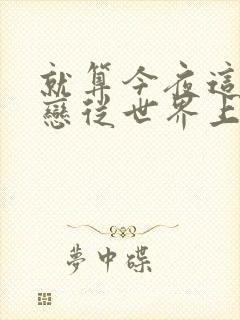 就算今夜這
戀從世界上
夢中碟